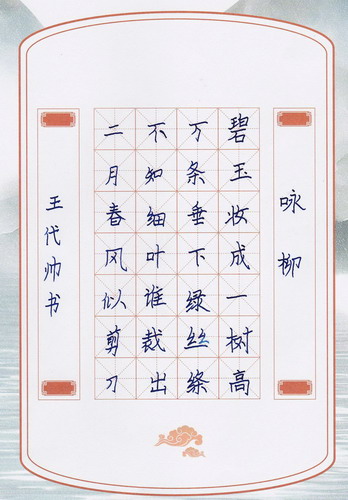 咏柳
碧玉妆成一树高
万条垂下绿丝绦
不知细叶谁裁出
二月春风似剪刀
王代帅书